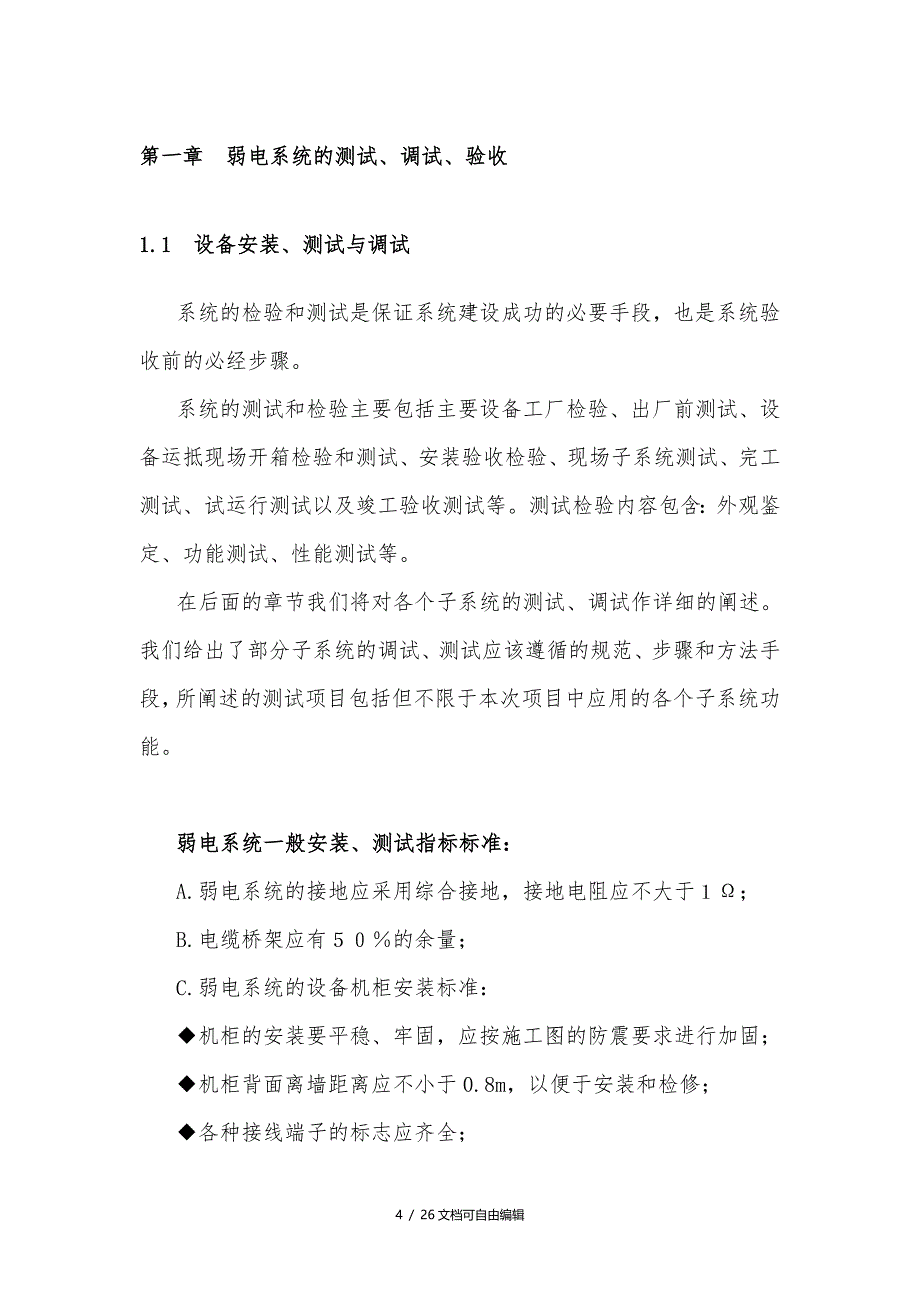 第一章　弱电系统的测试、调试、验收
1.1　设备安装、测试与调试
系统的检验和测试是保证系统建设成功的必要手段，也是系统验
收前的必经步骤。
系统的测试和检验主要包括主要设备工厂检验、出厂前测试、设
备运抵现场开箱检验和测试、安装验收检验、现场子系统测试、完工
测试、试运行测试以及竣工验收测试等。测试检验内容包含：外观鉴
定、功能测试、性能测试等。
在后面的章节我们将对各个子系统的测试、调试作详细的阐述。
我们给出了部分子系统的调试、测试应该遵循的规范、步骤和方法手
段，所阐述的测试项目包括但不限于本次项目中应用的各个子系统功
能。
弱电系统一般安装、测试指标标准：
A.弱电系统的接地应采用综合接地，接地电阻应不大于１Ω；
B.电缆桥架应有５０％的余量；
C.弱电系统的设备机柜安装标准：
◆机柜的安装要平稳、牢固，应按施工图的防震要求进行加固；
◆机柜背面离墙距离应不小于0.8m，以便于安装和检修；
◆各种接线端子的标志应齐全；
4 / 26文档可自由编辑